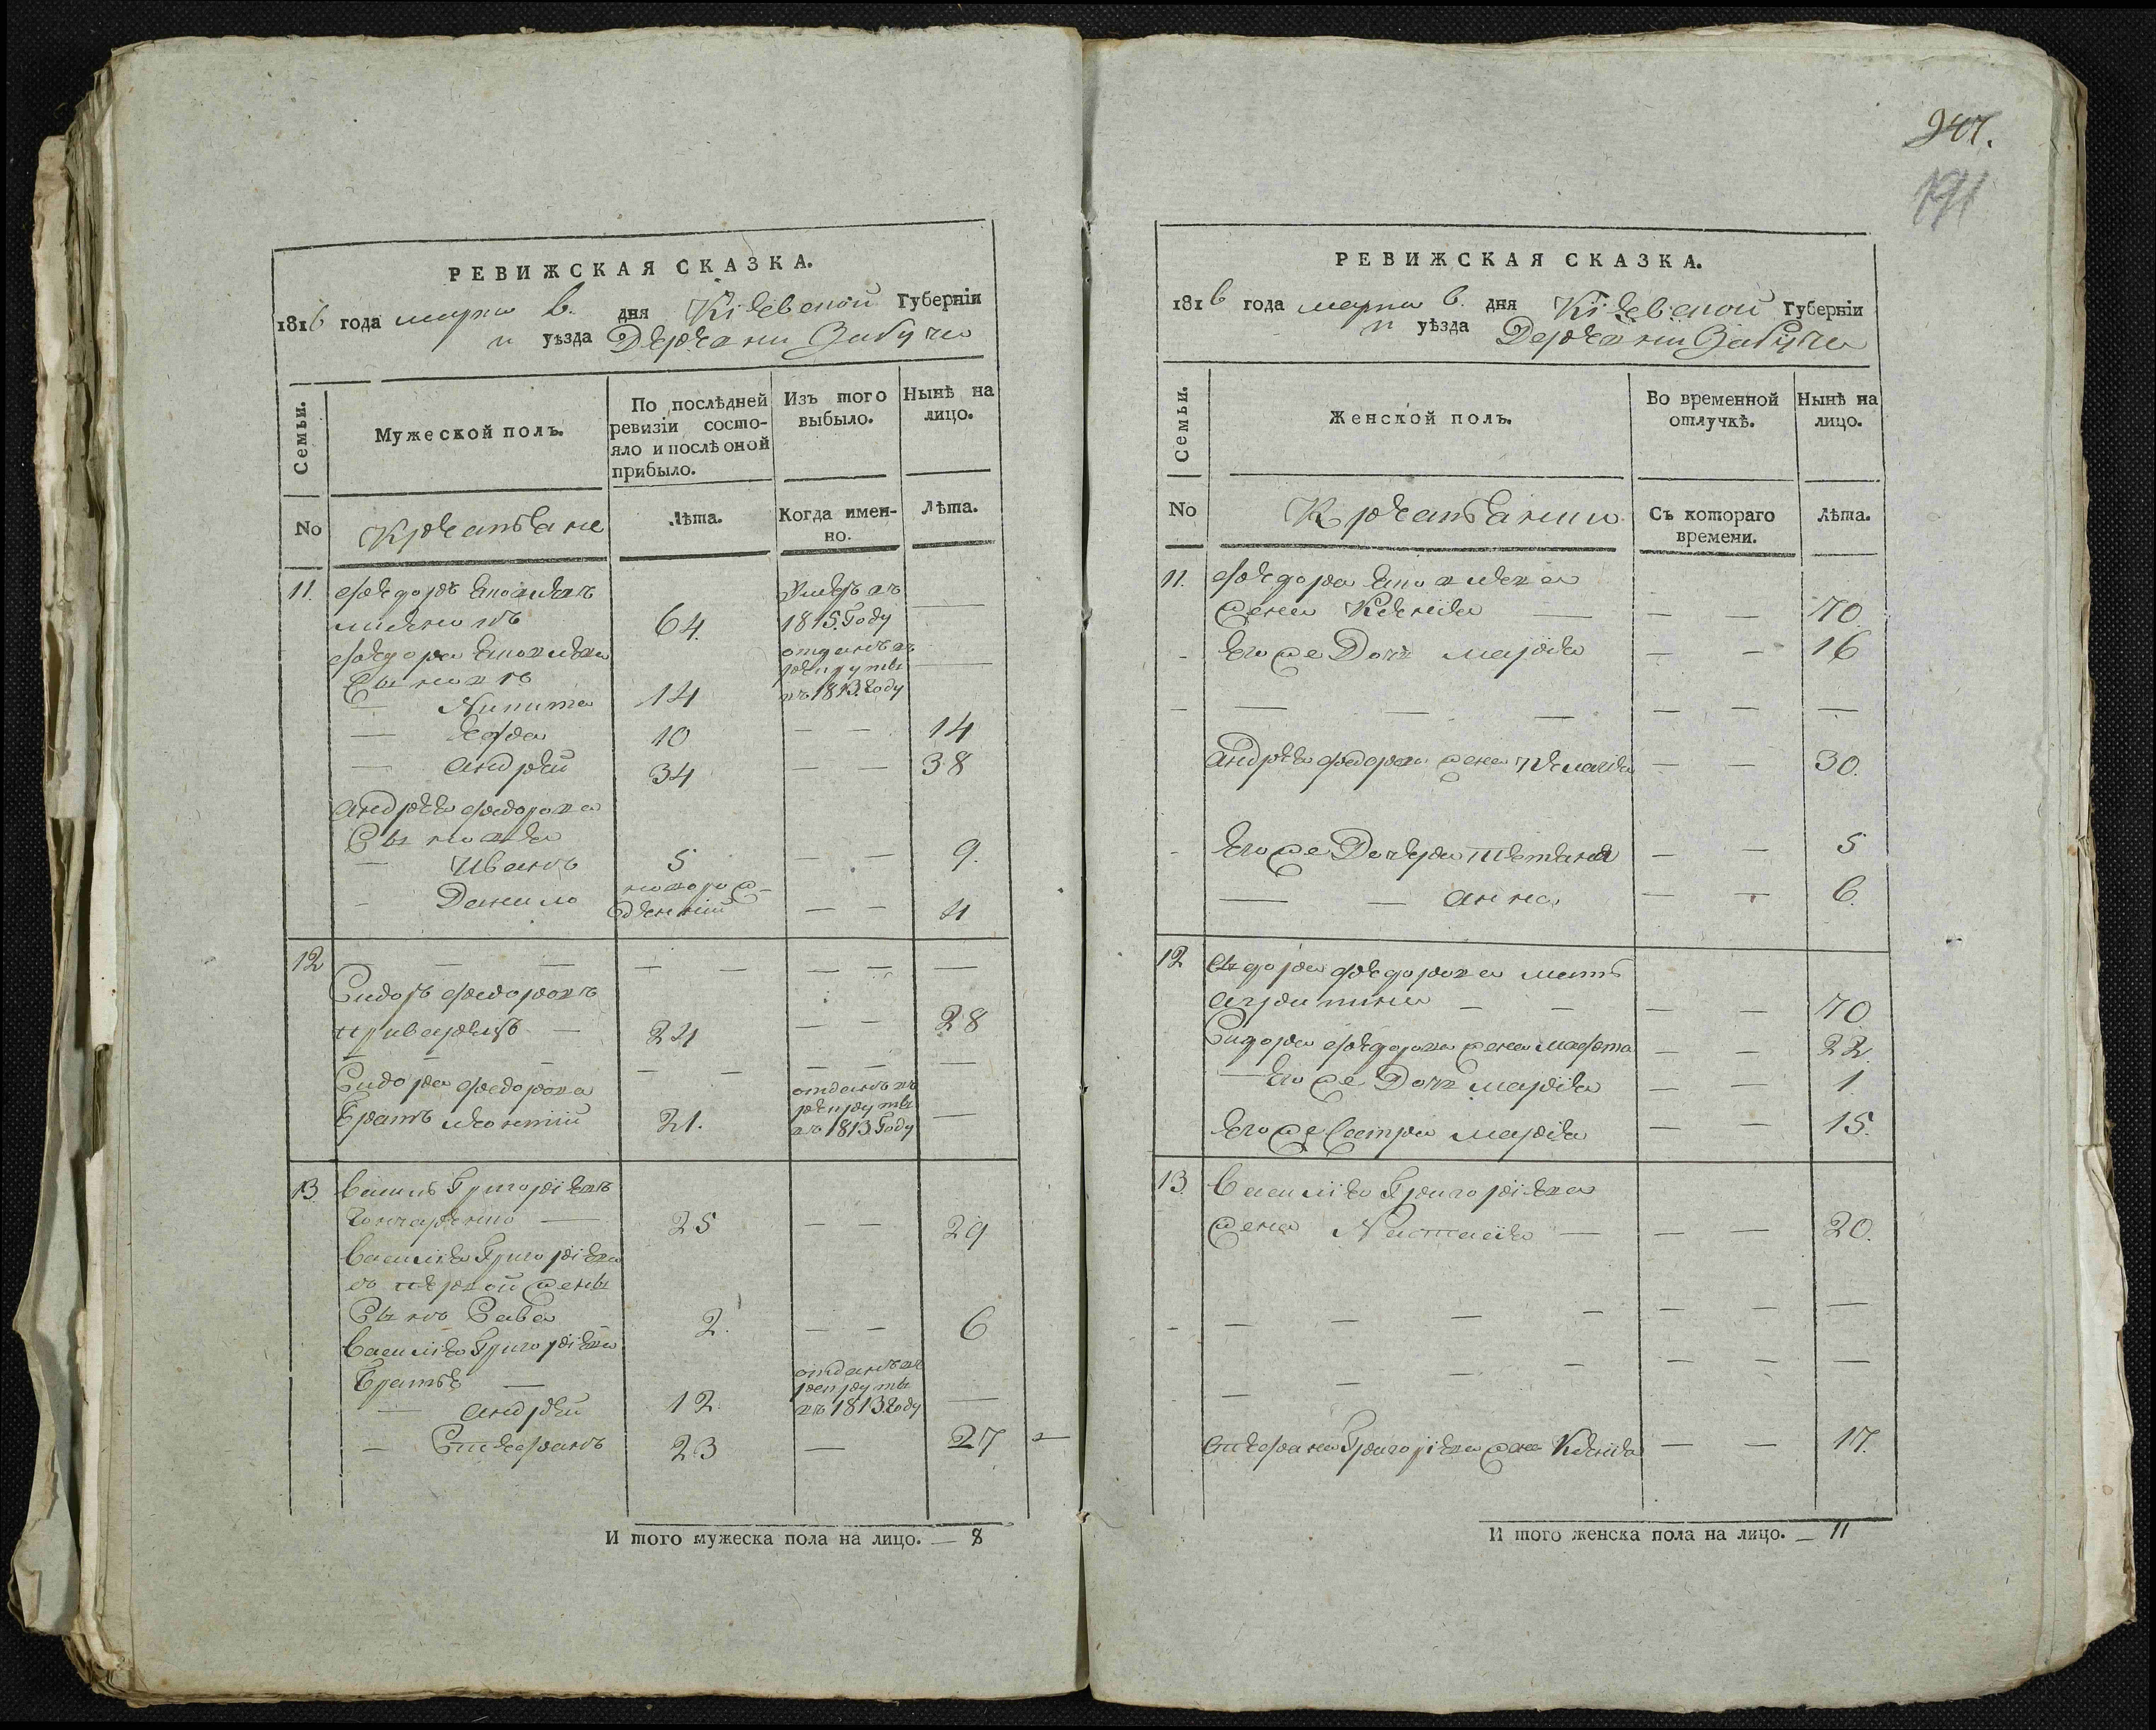 247.
191
РЕВИЖСКАЯ СКАЗКА.
1816 года марта 6. дня Кіевской Губерніи
и уѣзда Деревни Забучи
Семьи.
Мужеской полъ.
По послѣдней ревизіи состо-
яло и послѣ оной
прибыло.
Изъ того
выбыло.
Нынѣ на
лицо.
No
Крестьяне
Лѣта.
Когда имен-
но.
Лѣта.
11. Федоръ
64. Умеръ въ
1815. Году —
Федора
Сыновъ
— Никита 14 отданъ въ
рекруты
въ 1813. Году —
— 10 — — 14
— Андрей 34 — — 38
Андрея Федорова
Сыновья
— Иванъ 5 — — 9.
- Данило новорож-
денній — — 4
12 — — — — — — — —
Сидоръ Федоровъ
— 24 — — 28
— — — — — — — —
Сидора Федорова
Братъ Леонтій 21. отданъ въ
рекруты
въ 1813 Году —
13. Василь Григоріевъ
Гончаренко — 25 — — 29
Василія Григоріева
съ первой жены
Сынъ Сава 2. — — 6
Василія Григоріева
Братья —
— Андрей 12. отданъ въ
рекруты
въ 1813. Году —
— Стефанъ 23 — 27
И того мужеска пола на лицо. — 8
РЕВИЖСКАЯ СКАЗКА.
1816 года марта 6. дня Кіевской Губерніи
и уѣзда Деревни Забучи
Семьи.
Женской полъ.
Во временной
отлучкѣ.
Нынѣ на
лицо.
No
Крестьянки
Съ котораго
времени.
Лѣта.
11. Федора
жена Ксенія — — — 70.
- Его же Дочь Марія — — 16
- — — — — — —
Андрея Федорова жена — — 30.
- Его же Дочери Тетяна — — 5
— — Анна — — 6.
12 Сидора Федорова мать
Агрипина — — — — 70.
Сидора Федорова жена Марта — — 22.
— Его же Дочь Марія — — 1.
Его же Сестра Марія — — 15.
13. Василія Григоріева
жена Настасія — — — 20.
- — — — — — — —
— — — — — — —
Стефана Григоріева жена Ксенія — — 17.
И того женска пола на лицо. — 11